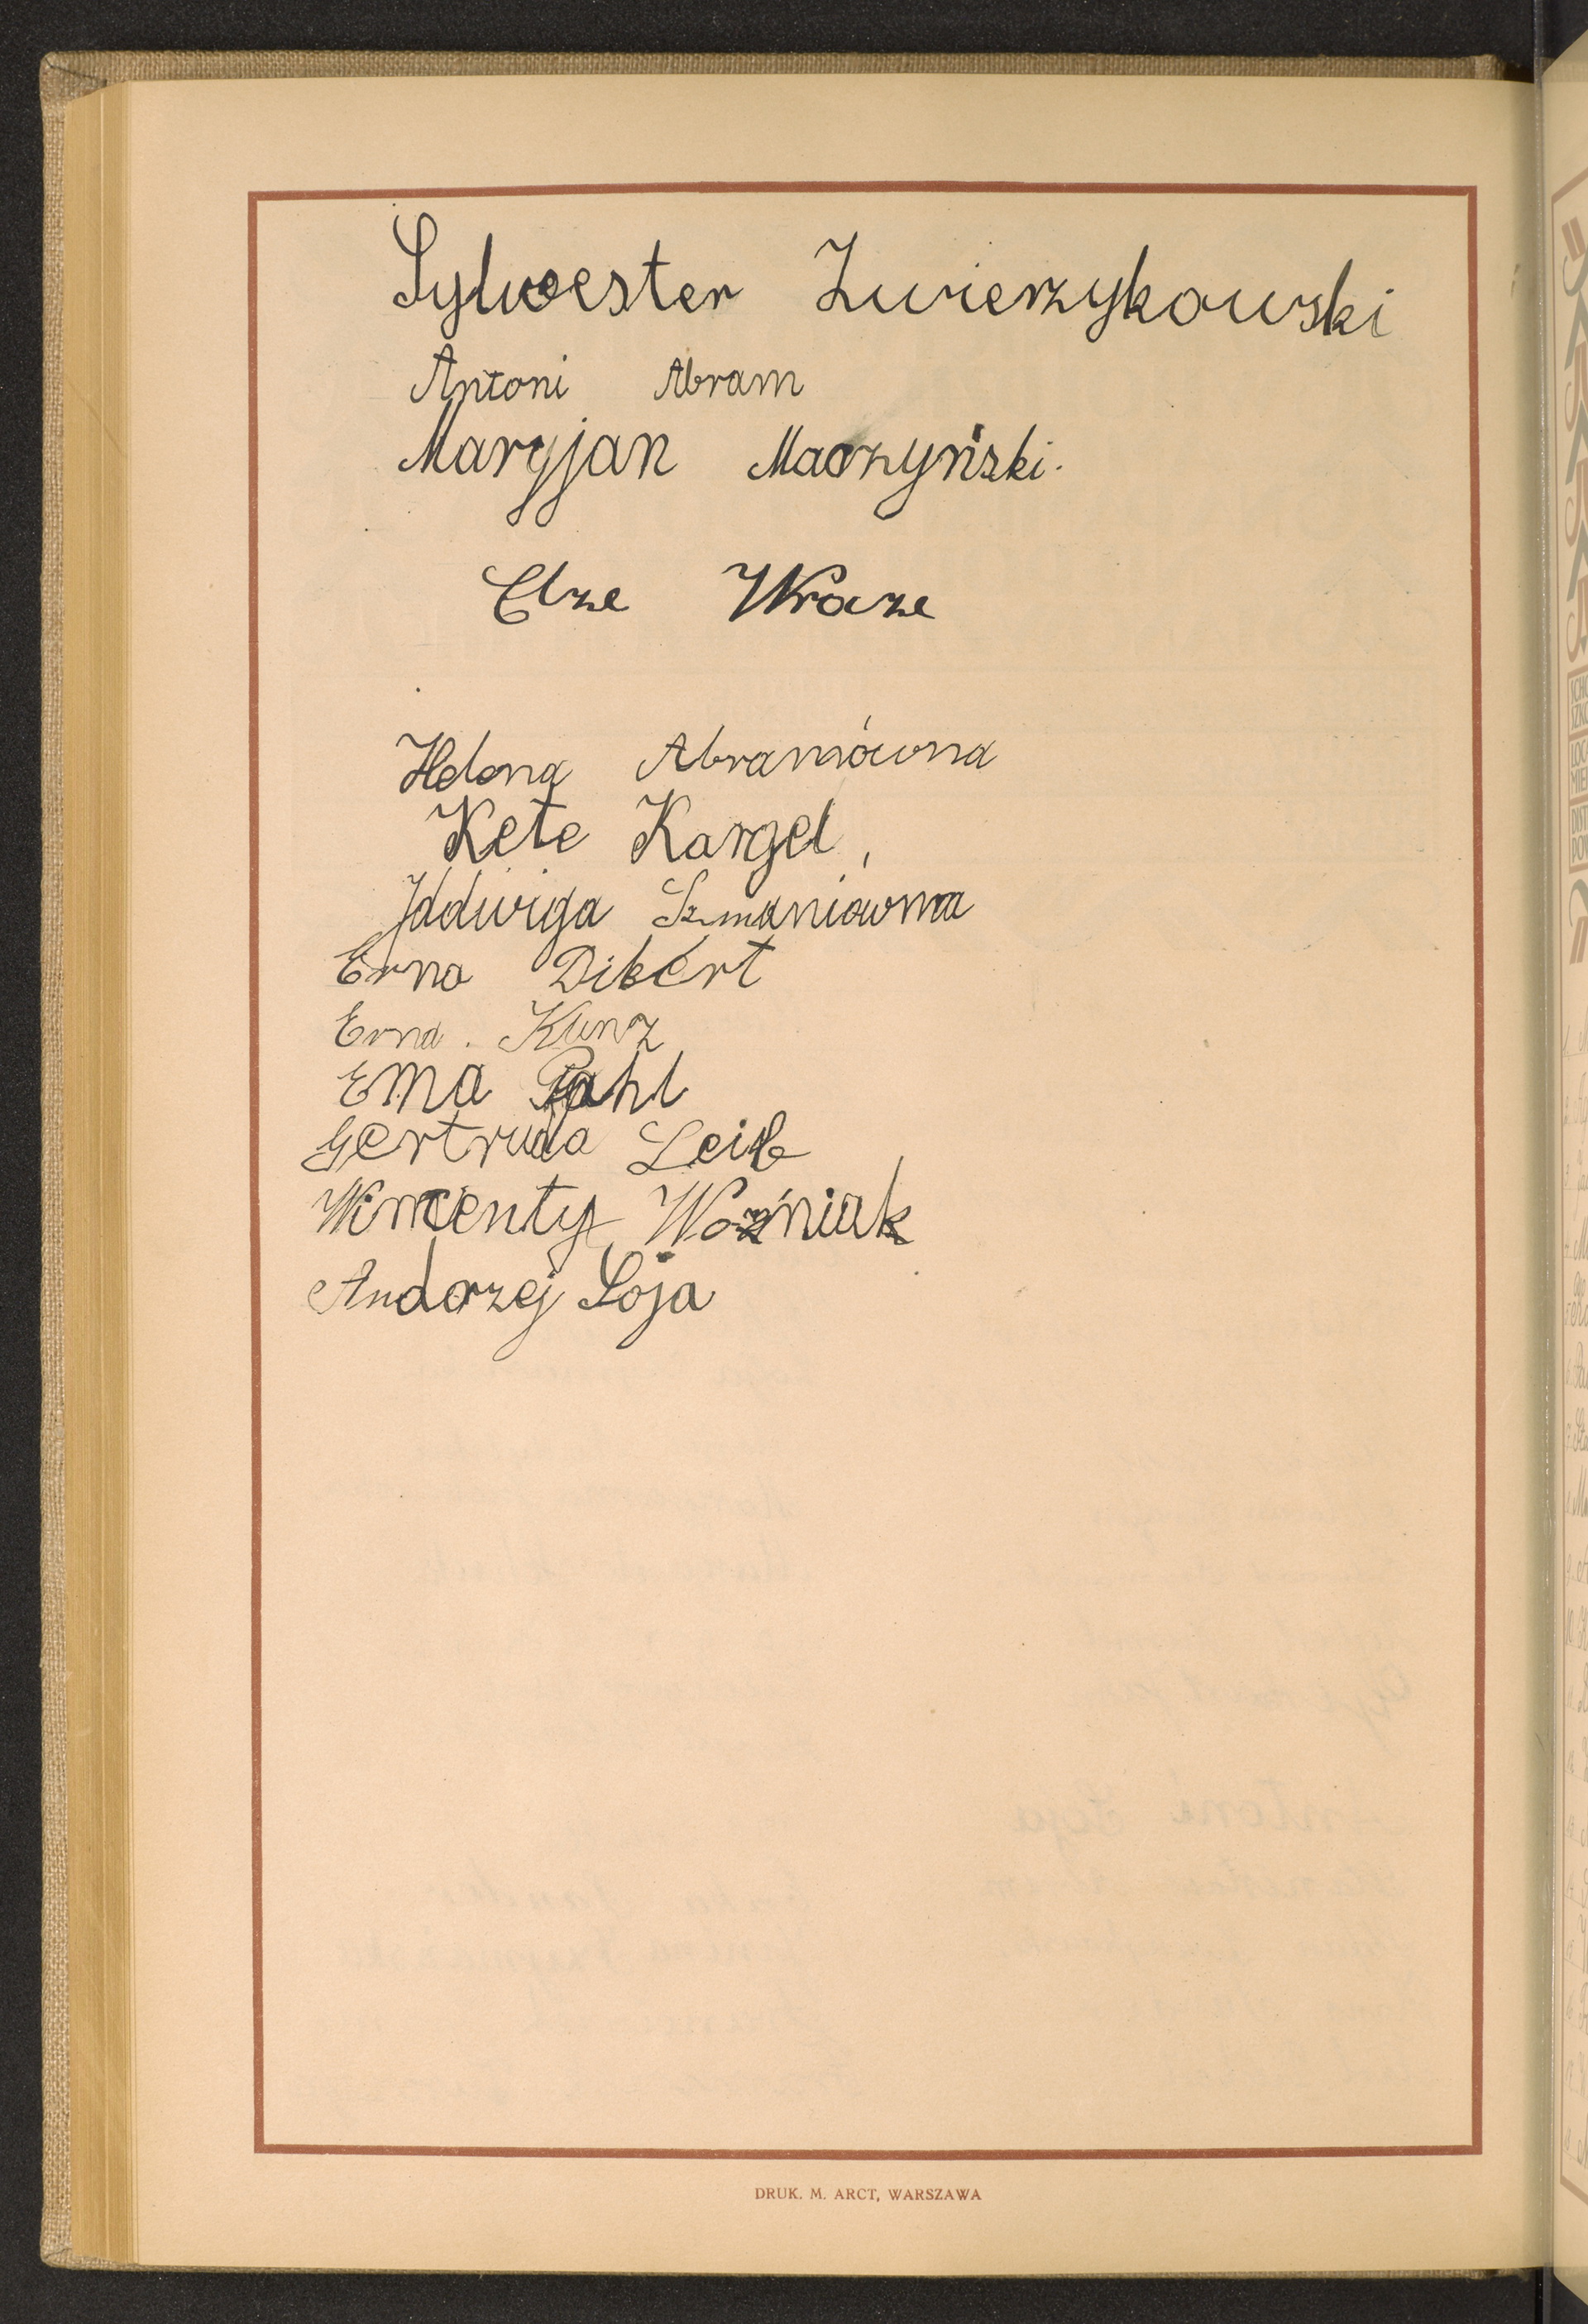 Sylwester Zwierzykowski
Antoni Abram
Maryjan Maczyński.
Elze Kraze
Helena Abramówna
Kete Kargel
Jadwiga Szmaniówna
Erna Dibert
Erna. Kunz
Ema Pahl
Gertruda Leib
Wincenty Woźniak
Andrzej Soja
DRUK. M. ARCT, WARSZAWA